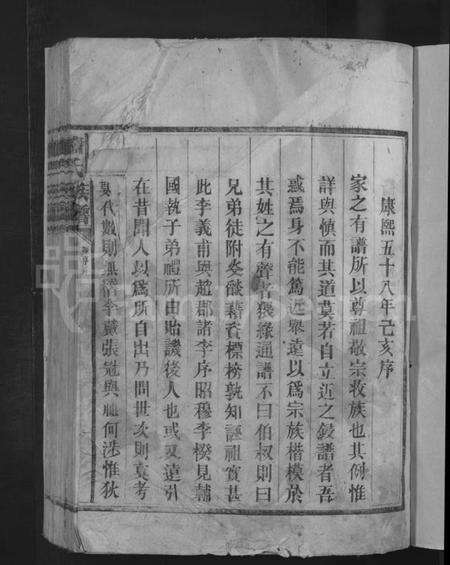 康熙五十八年己亥序
家之有譜所以尊祖敬宗收族也其例惟
詳與慎而其道莫若自立近之鋟譜者吾
惑焉身不能篤近舉遠以為宗族楷模於
其姓之有聲者猥緣通譜不曰伯叔則曰
兄弟徒附委醜藉資標榜孰知誣祖實甚
此李義甫與趙郡諸李序昭穆李揆見輔
國執子弟禮所由貽譏後人也或又遠引
在昔聞人以為所自出乃問世次則莫考
與代數則無稽李戴張冠與何洙惟狄
族譜